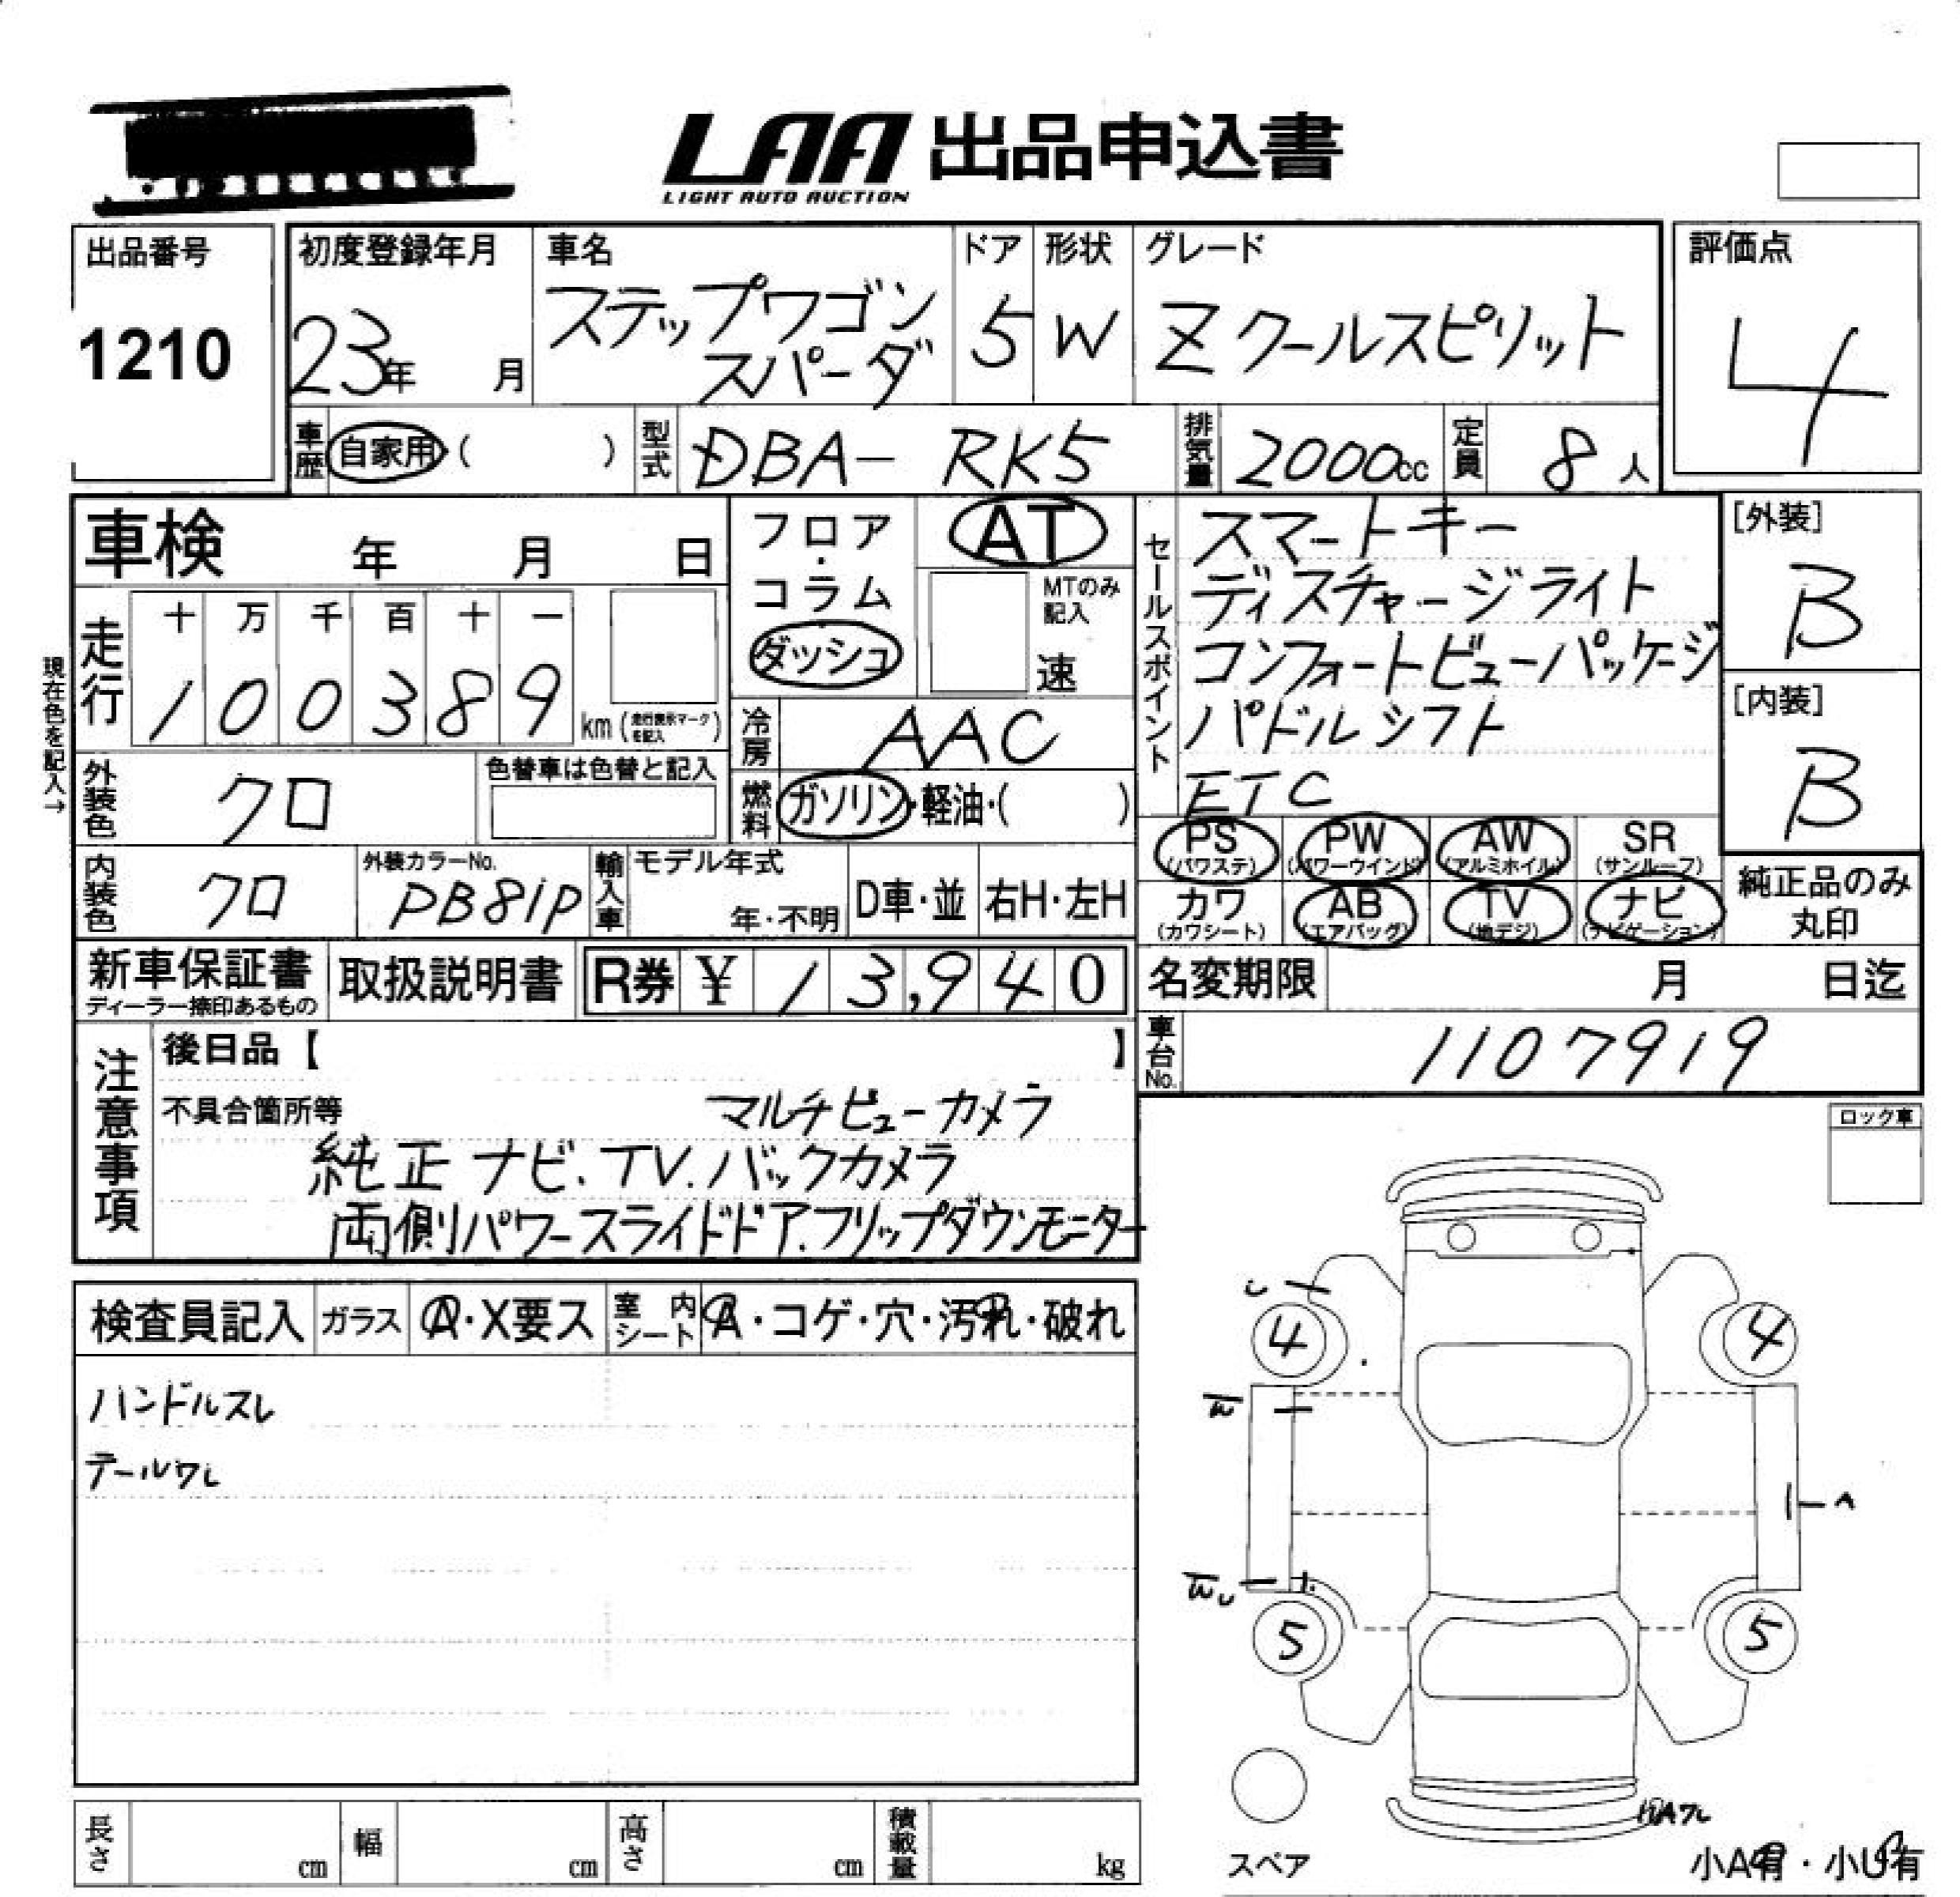 LAA 出品申込書
LIGHT AUTO AUCTION
出品番号
1210
初度登録年月
23年 月
車名
ステップワゴン
スパーダ
ドア
5
形状
W
グレード
Z クールスピリット
評価点
4
車歴 自家用 ( )
型式 DBA- RK5
排気量 2000cc
定員 8人
車検 年 月 日
フロア・コラム・ダッシュ
AT
MTのみ記入
速
セールスポイント
スマートキー
ディスチャージライト
コンフォートビューパッケージ
パドルシフト
ETC
[外装]
B
[内装]
B
現在色を記入→
走行
十 万 千 百 十 一
1 0 0 3 8 9 km (走行表示マークを記入)
冷房 AAC
燃料 ガソリン・軽油・( )
外装色 クロ
色替車は色替と記入
PS (パワステ)
PW (パワーウインド)
AW (アルミホイル)
SR (サンルーフ)
カワ (カワシート)
AB (エアバッグ)
TV (地デジ)
ナビ (ナビゲーション)
純正品のみ
丸印
内装色 クロ
外装カラーNo.
PB81P
輸入車
モデル年式
年・不明
D車・並
右H・左H
新車保証書
ディーラー捺印あるもの
取扱説明書
R券 ¥ 13,940
名変期限 月 日迄
車台No. 1107919
注意事項
後日品【 】
不具合箇所等 マルチビューカメラ
純正ナビ.TV.バックカメラ
両側パワースライドドア.フリップダウンモニター
ロック車
検査員記入
ガラス A・X要ス
室内シート A・コゲ・穴・汚れ・破れ
ハンドルスレ
テールワレ
4
4
W
W U
5
5
スペア
小A有・小U有
長さ cm
幅 cm
高さ cm
積載量 kg